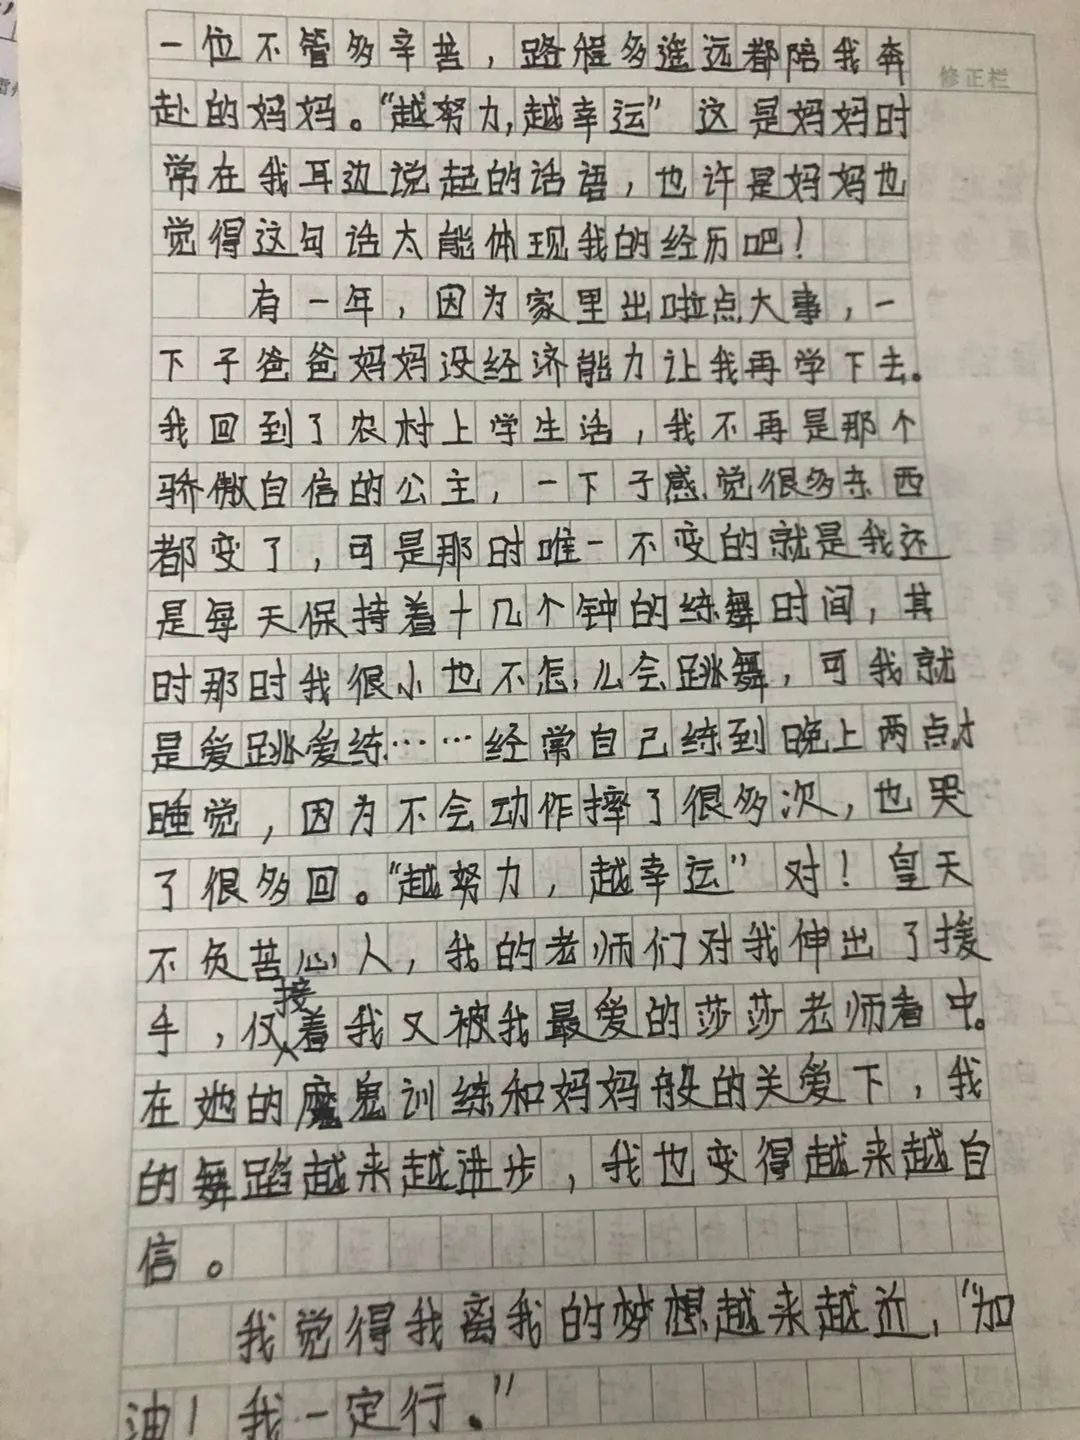 一位不管多辛苦，路程多遥远都陪我奔
修正栏
赴的妈妈。“越努力,越幸运”这是妈妈时
常在我耳边说起的话语，也许是妈妈也
觉得这句话太能体现我的经历吧！
有一年，因为家里出啦点大事，一
下子爸爸妈妈没经济能力让我再学下去。
我回到了农村上学生活，我不再是那个
骄傲自信的公主，一下子感觉很多东西
都变了，可是那时唯一不变的就是我还
是每天保持着十几个钟的练舞时间，其
时那时我很小也不怎么会跳舞，可我就
是爱跳爱练……经常自己练到晚上两点才
睡觉，因为不会动作摔了很多次，也哭
了很多回。“越努力，越幸运”对！皇天
不负苦心人，我的老师们对我伸出了援
手，仅接着我又被我最爱的莎莎老师看中。
在她的魔鬼训练和妈妈般的关爱下，我
的舞蹈越来越进步，我也变得越来越自
信。
我觉得我离我的梦想越来越近，“加
油！我一定行。”